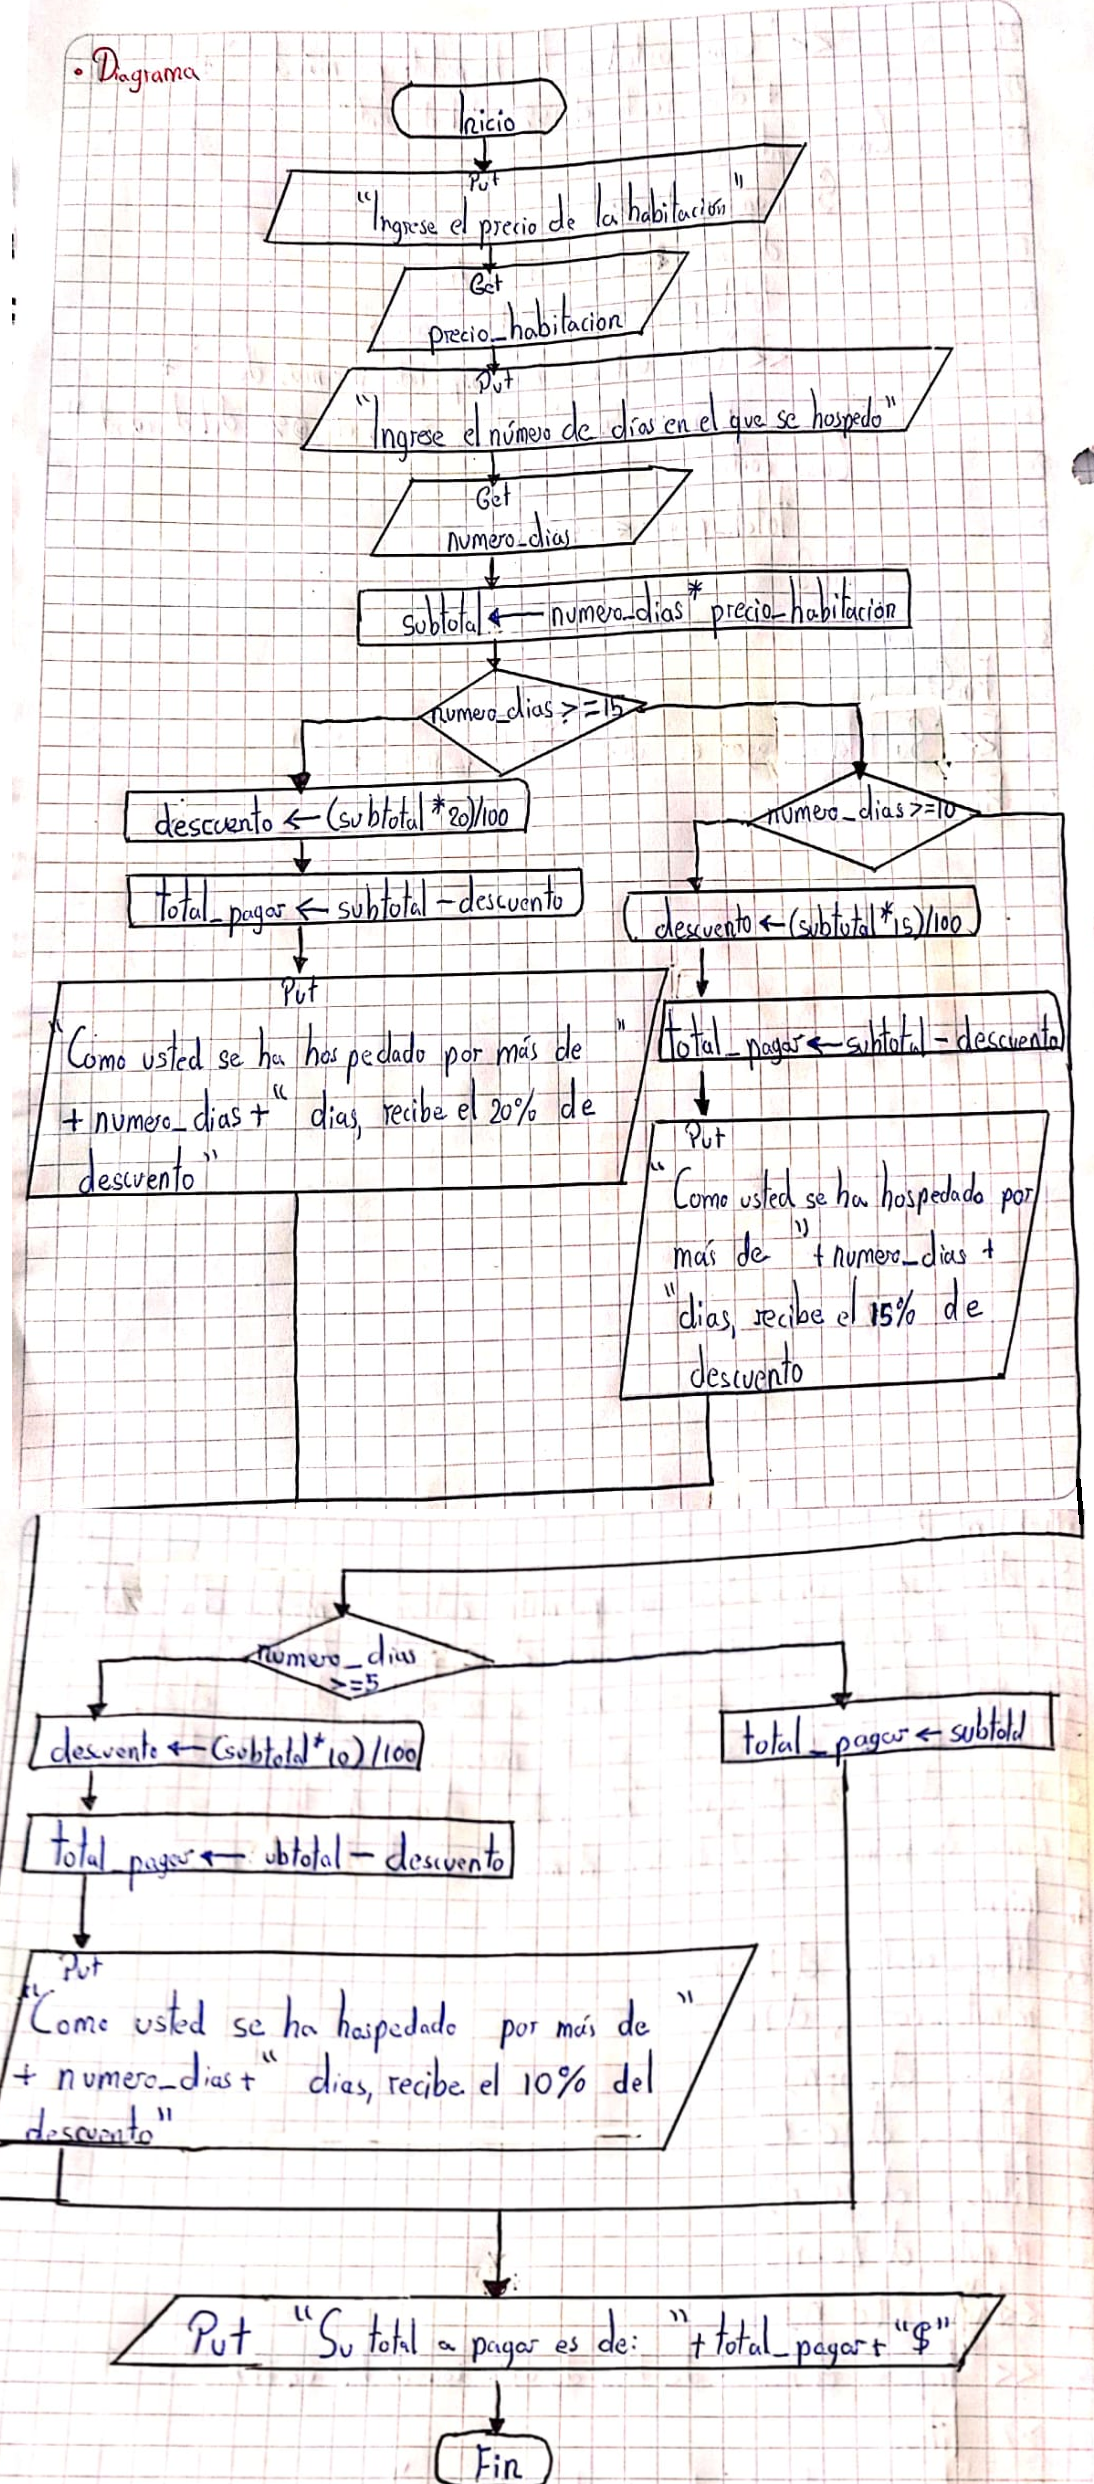 • Diagrama
Inicio
Put
"Ingrese el precio de la habitación"
Get
precio_habitacion
Put
"Ingrese el número de días en el que se hospedo"
Get
numero_dias
subtotal ← numero_dias * precio_habitación
numero_dias >=15
descuento ← (subtotal * 20)/100
total_pagar ← subtotal - descuento
Put
"Como usted se ha hospedado por más de "
+ numero_dias + " dias, recibe el 20% de
descuento"
numero_dias >=10
descuento ← (subtotal * 15)/100
total_pagar ← subtotal - descuento
Put
"Como usted se ha hospedado por
más de " + numero_dias +
"dias, recibe el 15% de
descuento
numero_dias
>=5
descuento ← (subtotal * 10)/100
total_pagar ← ubtotal - descuento
Put
"Como usted se ha hospedado por más de "
+ numero_dias + " dias, recibe el 10% del
descuento"
total_pagar ← subtotal
Put "Su total a pagar es de: " + total_pagar + "$"
Fin